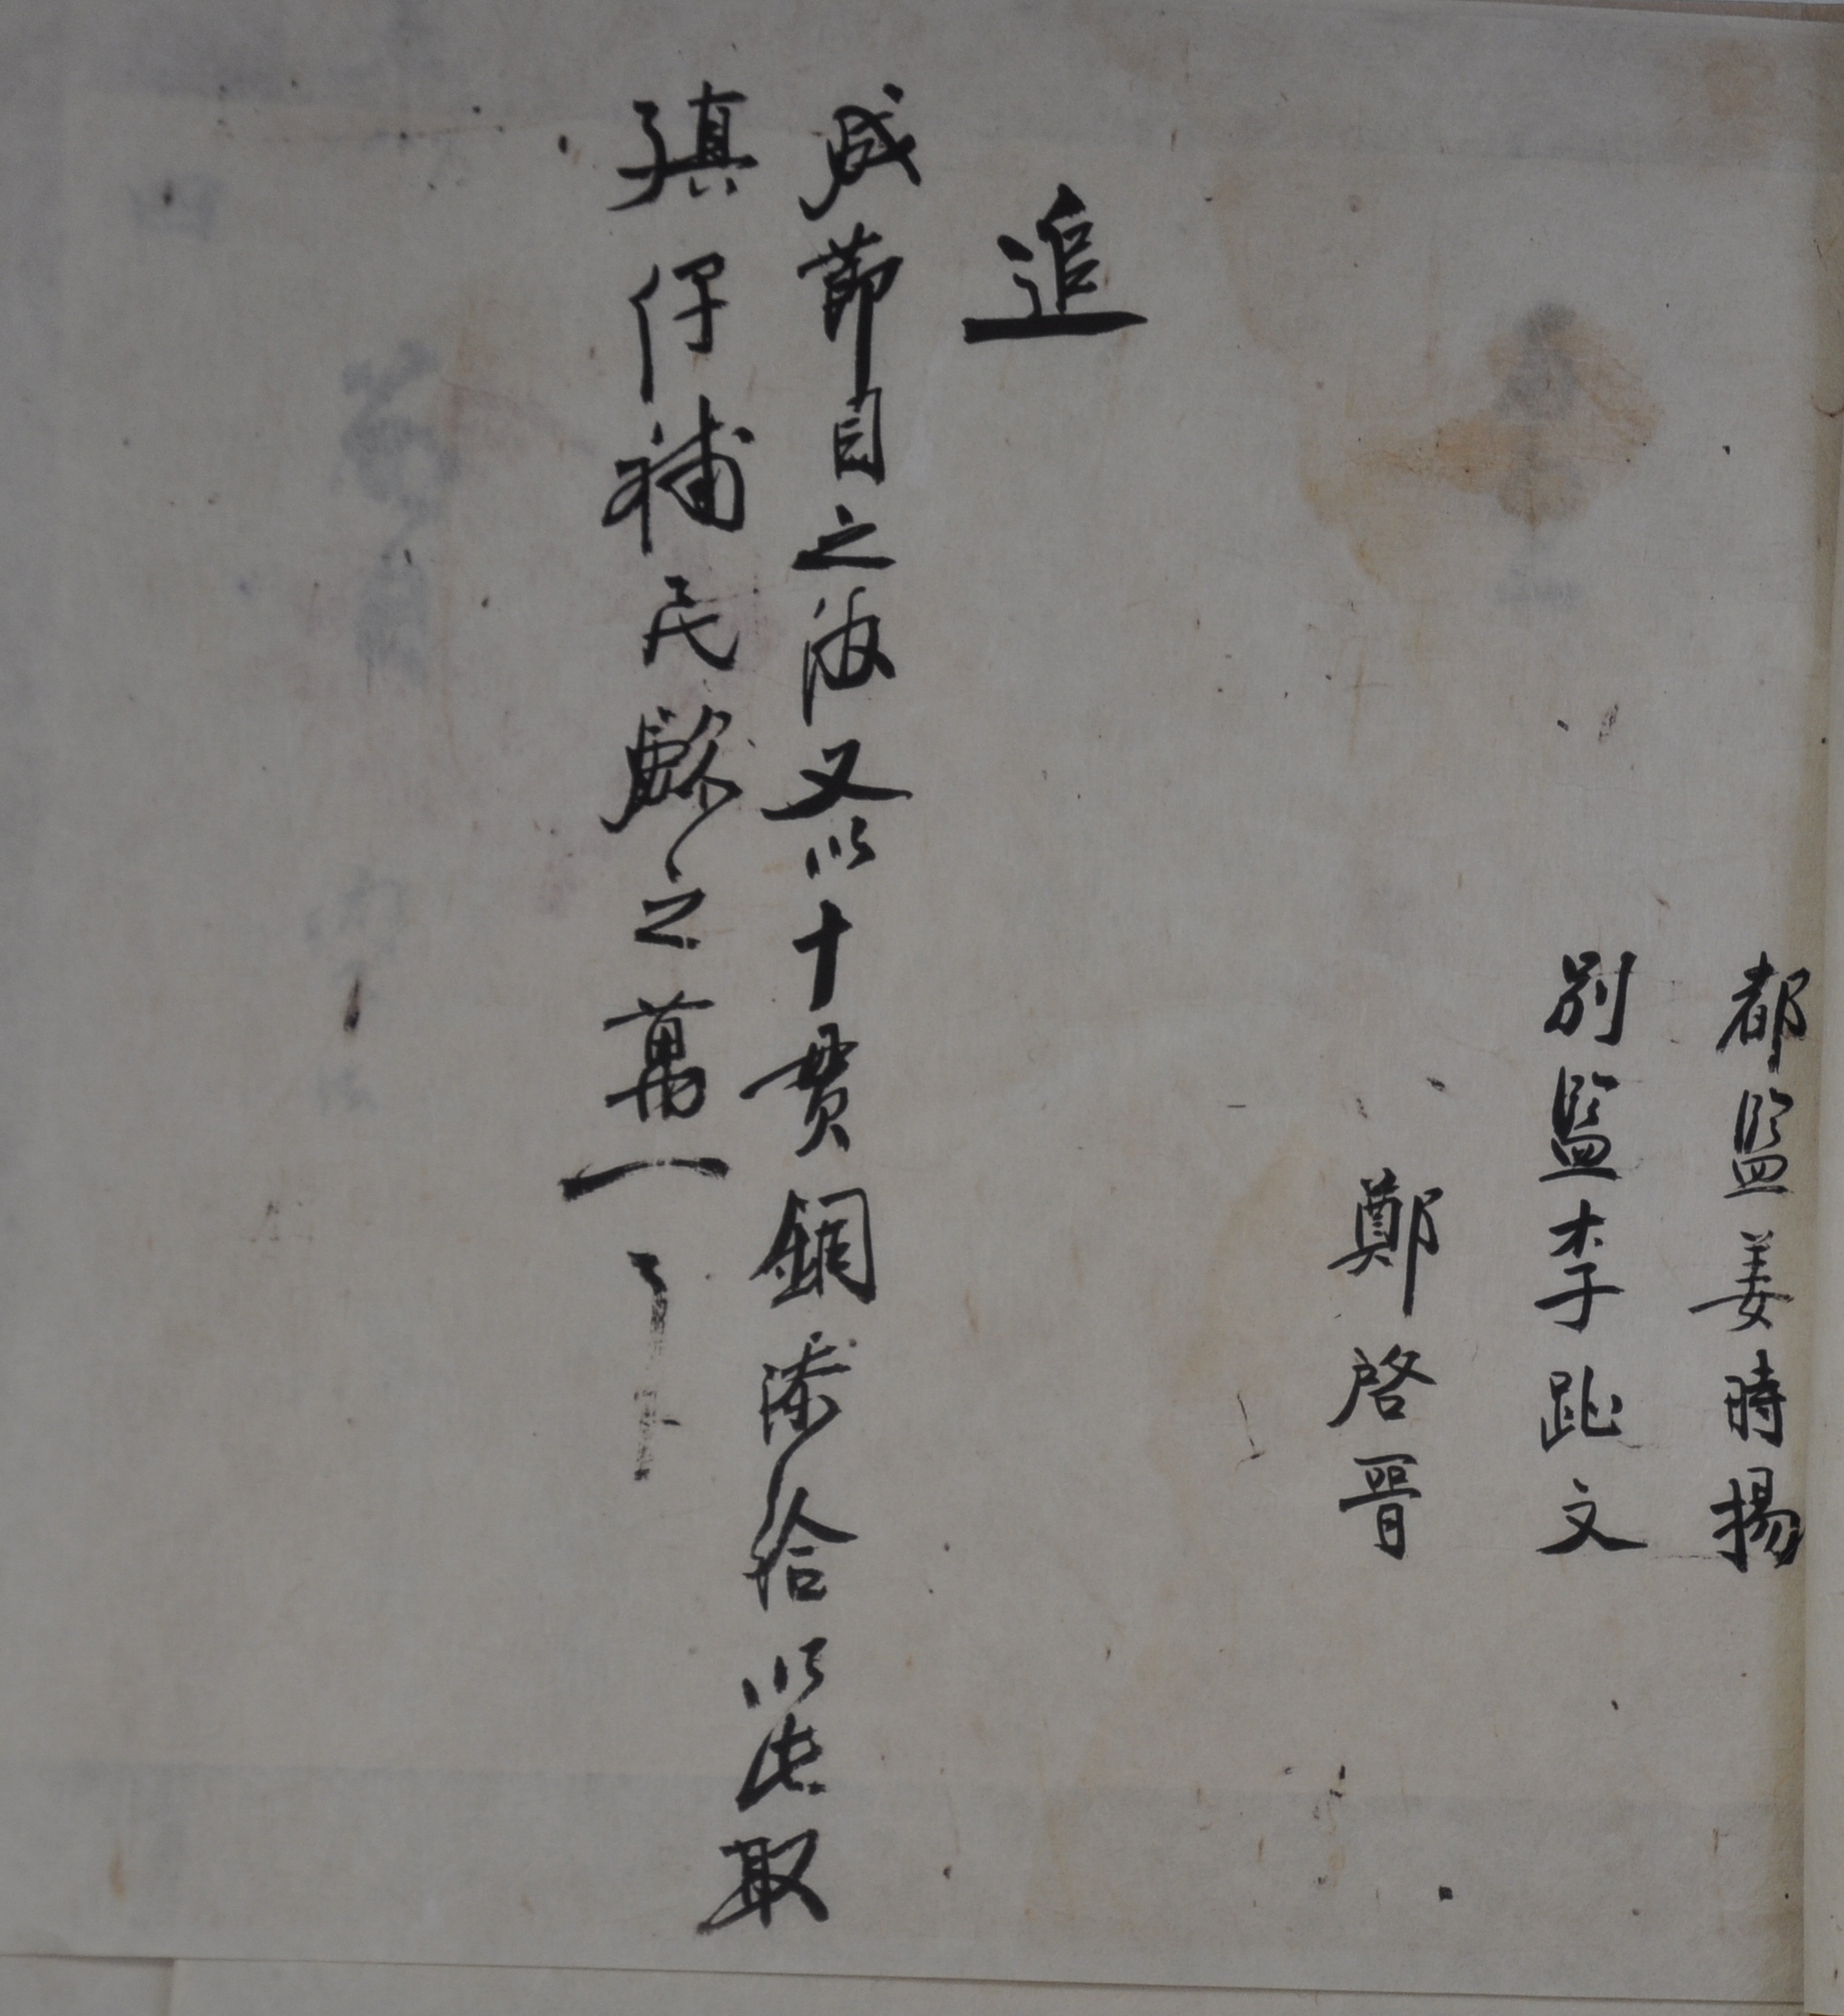 都監姜時揚
別監李趾文
鄭啓晉
追
成節目之後又以十貫銅添給以此取
殖仔補民瘼之萬一